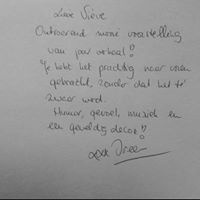 Lieve
Ontroerend mooie voorstelling
van jouw verhaal!!
Je hebt het prachtig naar voren
gebracht, zonder dat het te
zwaar werd.
Humor, gevoel, muziek en
een geweldig decor!!